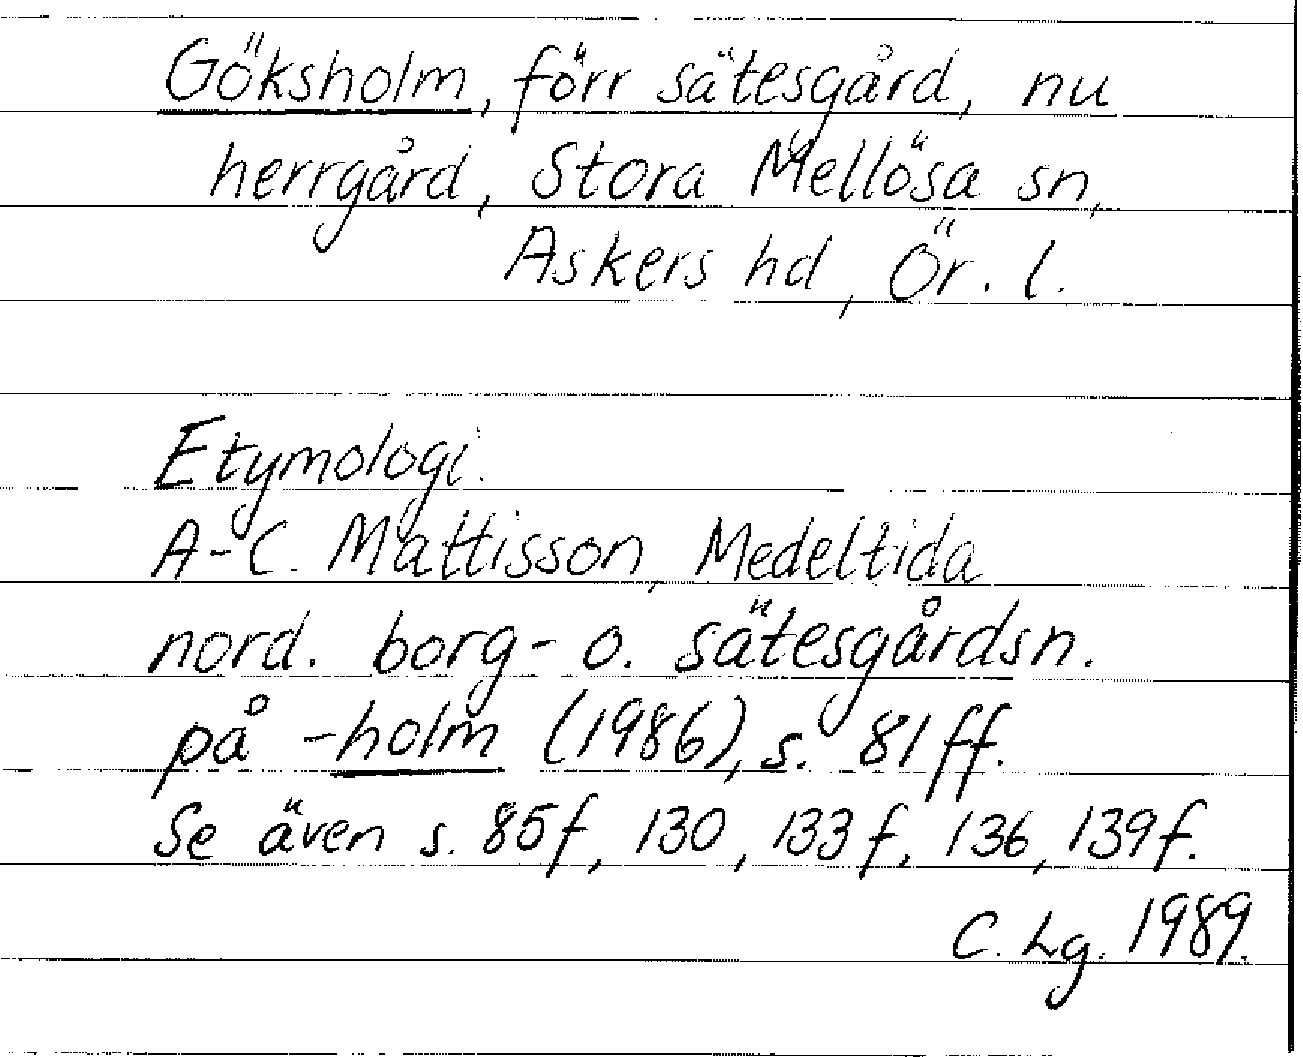 Göksholm, förr sätesgård, nu
herrgård, Stora Mellösa sn,
Askers hd, Ör. l.
Etymologi.
A-C. Mattisson, Medeltida
nord. borg- o. sätesgårdsn.
på -holm (1986), s. 81ff.
Se även s. 85f, 130, 133f, 136, 139f.
C. Lg. 1989.